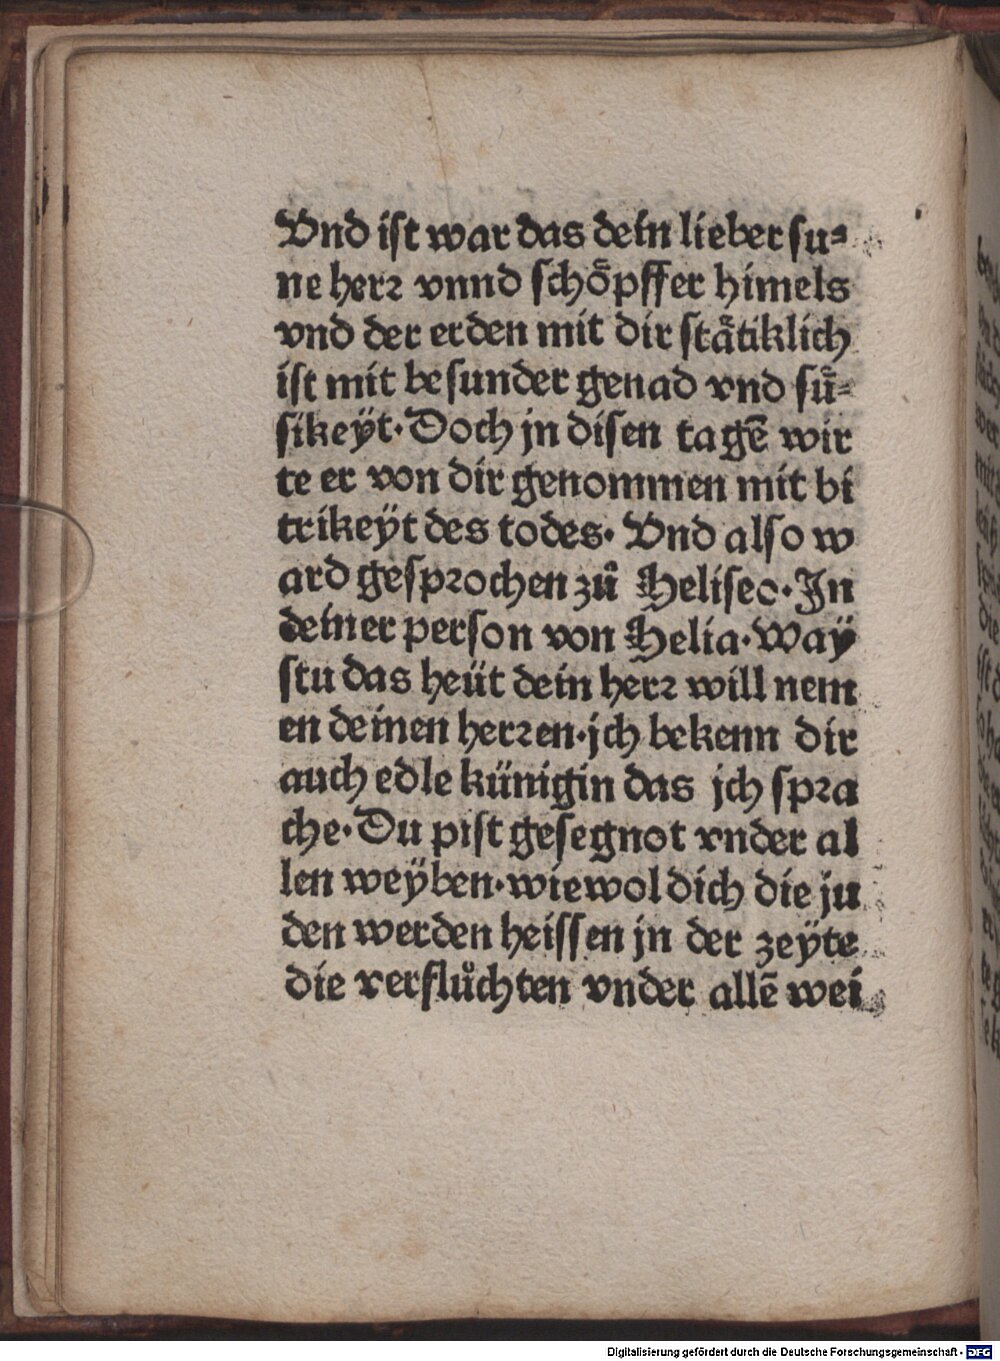 Vnd ist war das dein lieber su⸗
ne herꝛ vnnd schoͤpffer himels
vnd der erden mit dir staͤtiklich
ist mit besunder genad vnd suͤ⸗
sikeÿt. Doch jn disen tagē wir
te er von dir genommen mit bi
trikeÿt des todes. Vnd also w
ard gespꝛochen zuͦ Heliseo. In
deiner person von Helia. Waÿ
stu das heüt dein herꝛ will nem
en deinen herꝛen. jch bekenn dir
auch edle künigin das jch spꝛa
che. Du pist gesegnot vnder al
len weÿben. wiewol dich die ju
den werden heissen jn der zeÿte
die verfluͦchten vnder allē wei
Digitalisierung gefördert durch die Deutsche Forschungsgemeinschaft - DFG